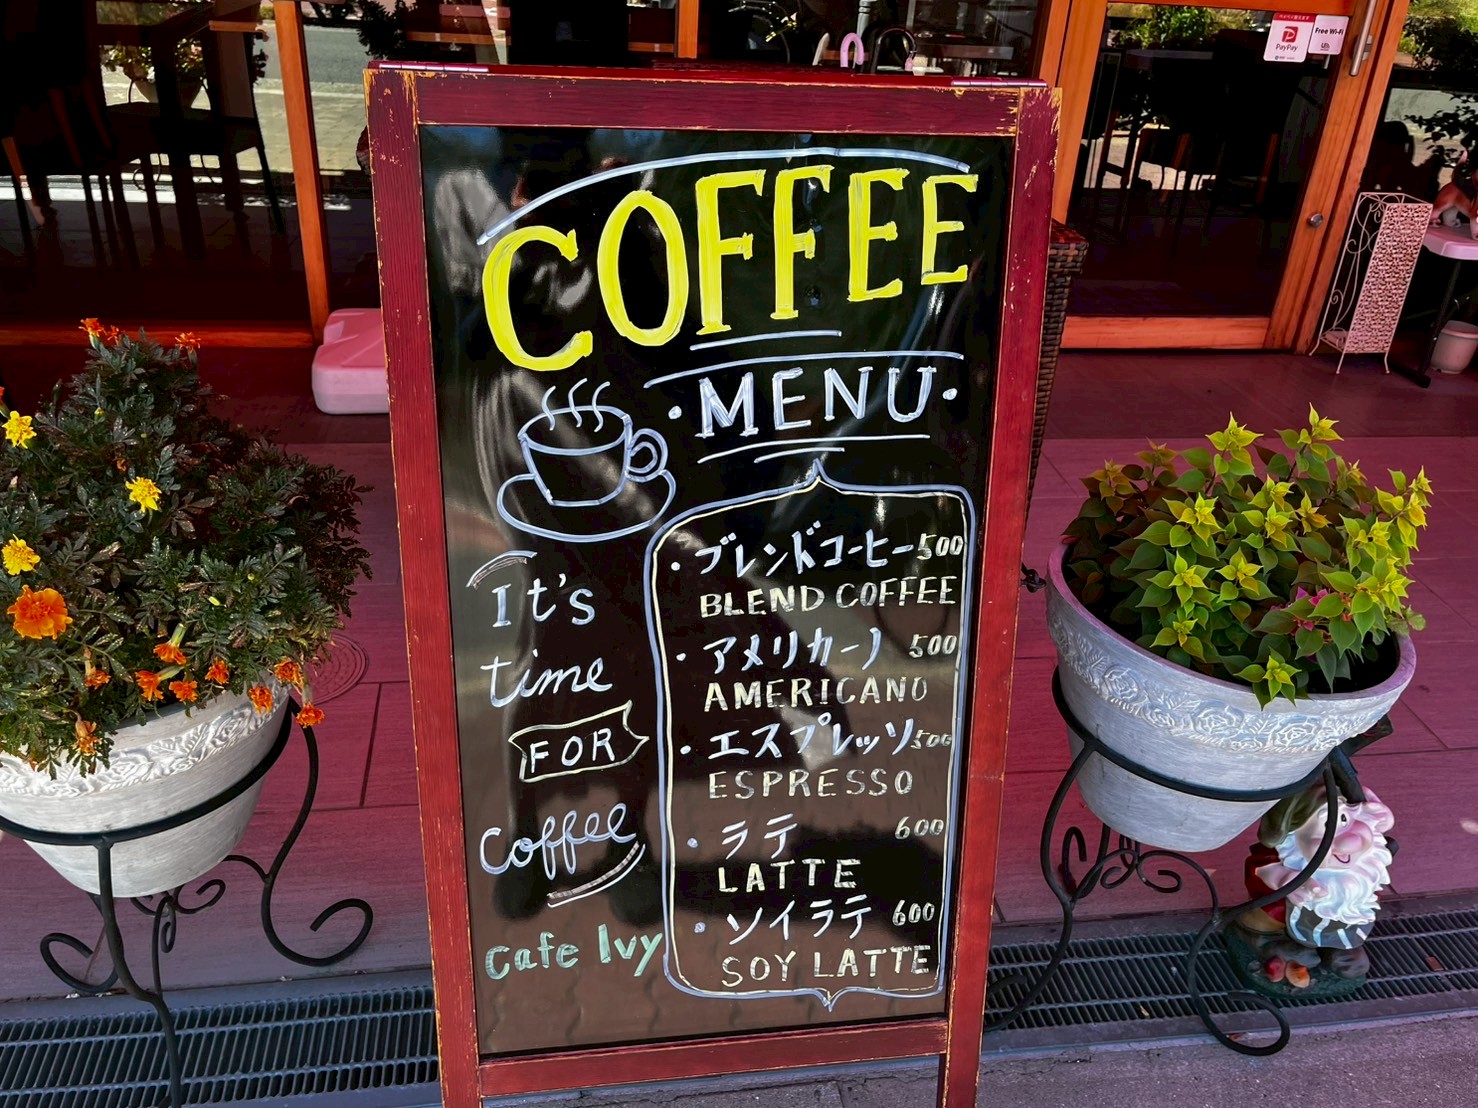 PayPay
Free Wi-Fi
COFFEE
・MENU・
・ブレンドコーヒー500
BLEND COFFEE
・アメリカーノ 500
AMERICANO
・エスプレッソ500
ESPRESSO
・ラテ 600
LATTE
・ソイラテ 600
SOY LATTE
It's
time
FOR
Coffee
Cafe Ivy